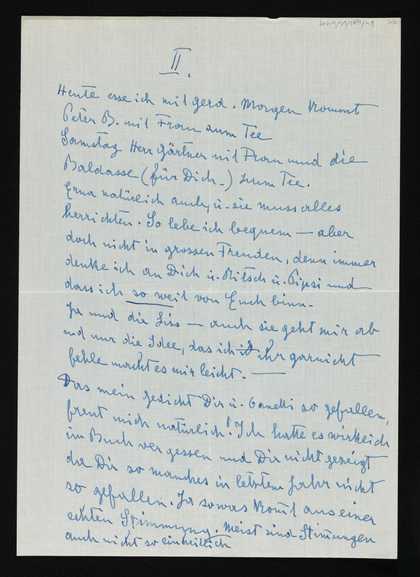 II.
Heute esse ich mit Gerd. Morgen kommt
Peter B. mit Frau zum Tee
Samstag Herr Gärtner mit Frau und die
Baldasse (für Dich -) zum Tee.
Erna natürlich auch, u. sie muss alles
herrichten. So lebe ich bequem — aber
doch nicht in grossen Freuden, denn immer
denke ich an Dich u. Mitsch u. Pipsi und
dass ich so weit von Euch binn.
Ja und die Liss — auch sie geht mir ab
und nur die Idee, das ich ihr garnicht
fehle macht es mir leicht. —
Das mein Gedicht Dir u. Canetti so gefallen,
freut mich natürlich! Ich hatte es wirklich
im Buch vergessen und Dir nicht gezeigt
da Dir so manches im letzten Jahr nicht
so gefallen. Ja sowas komt aus einer
echten Stimmung. Meist sind Stimungen
auch nicht so einheitlich